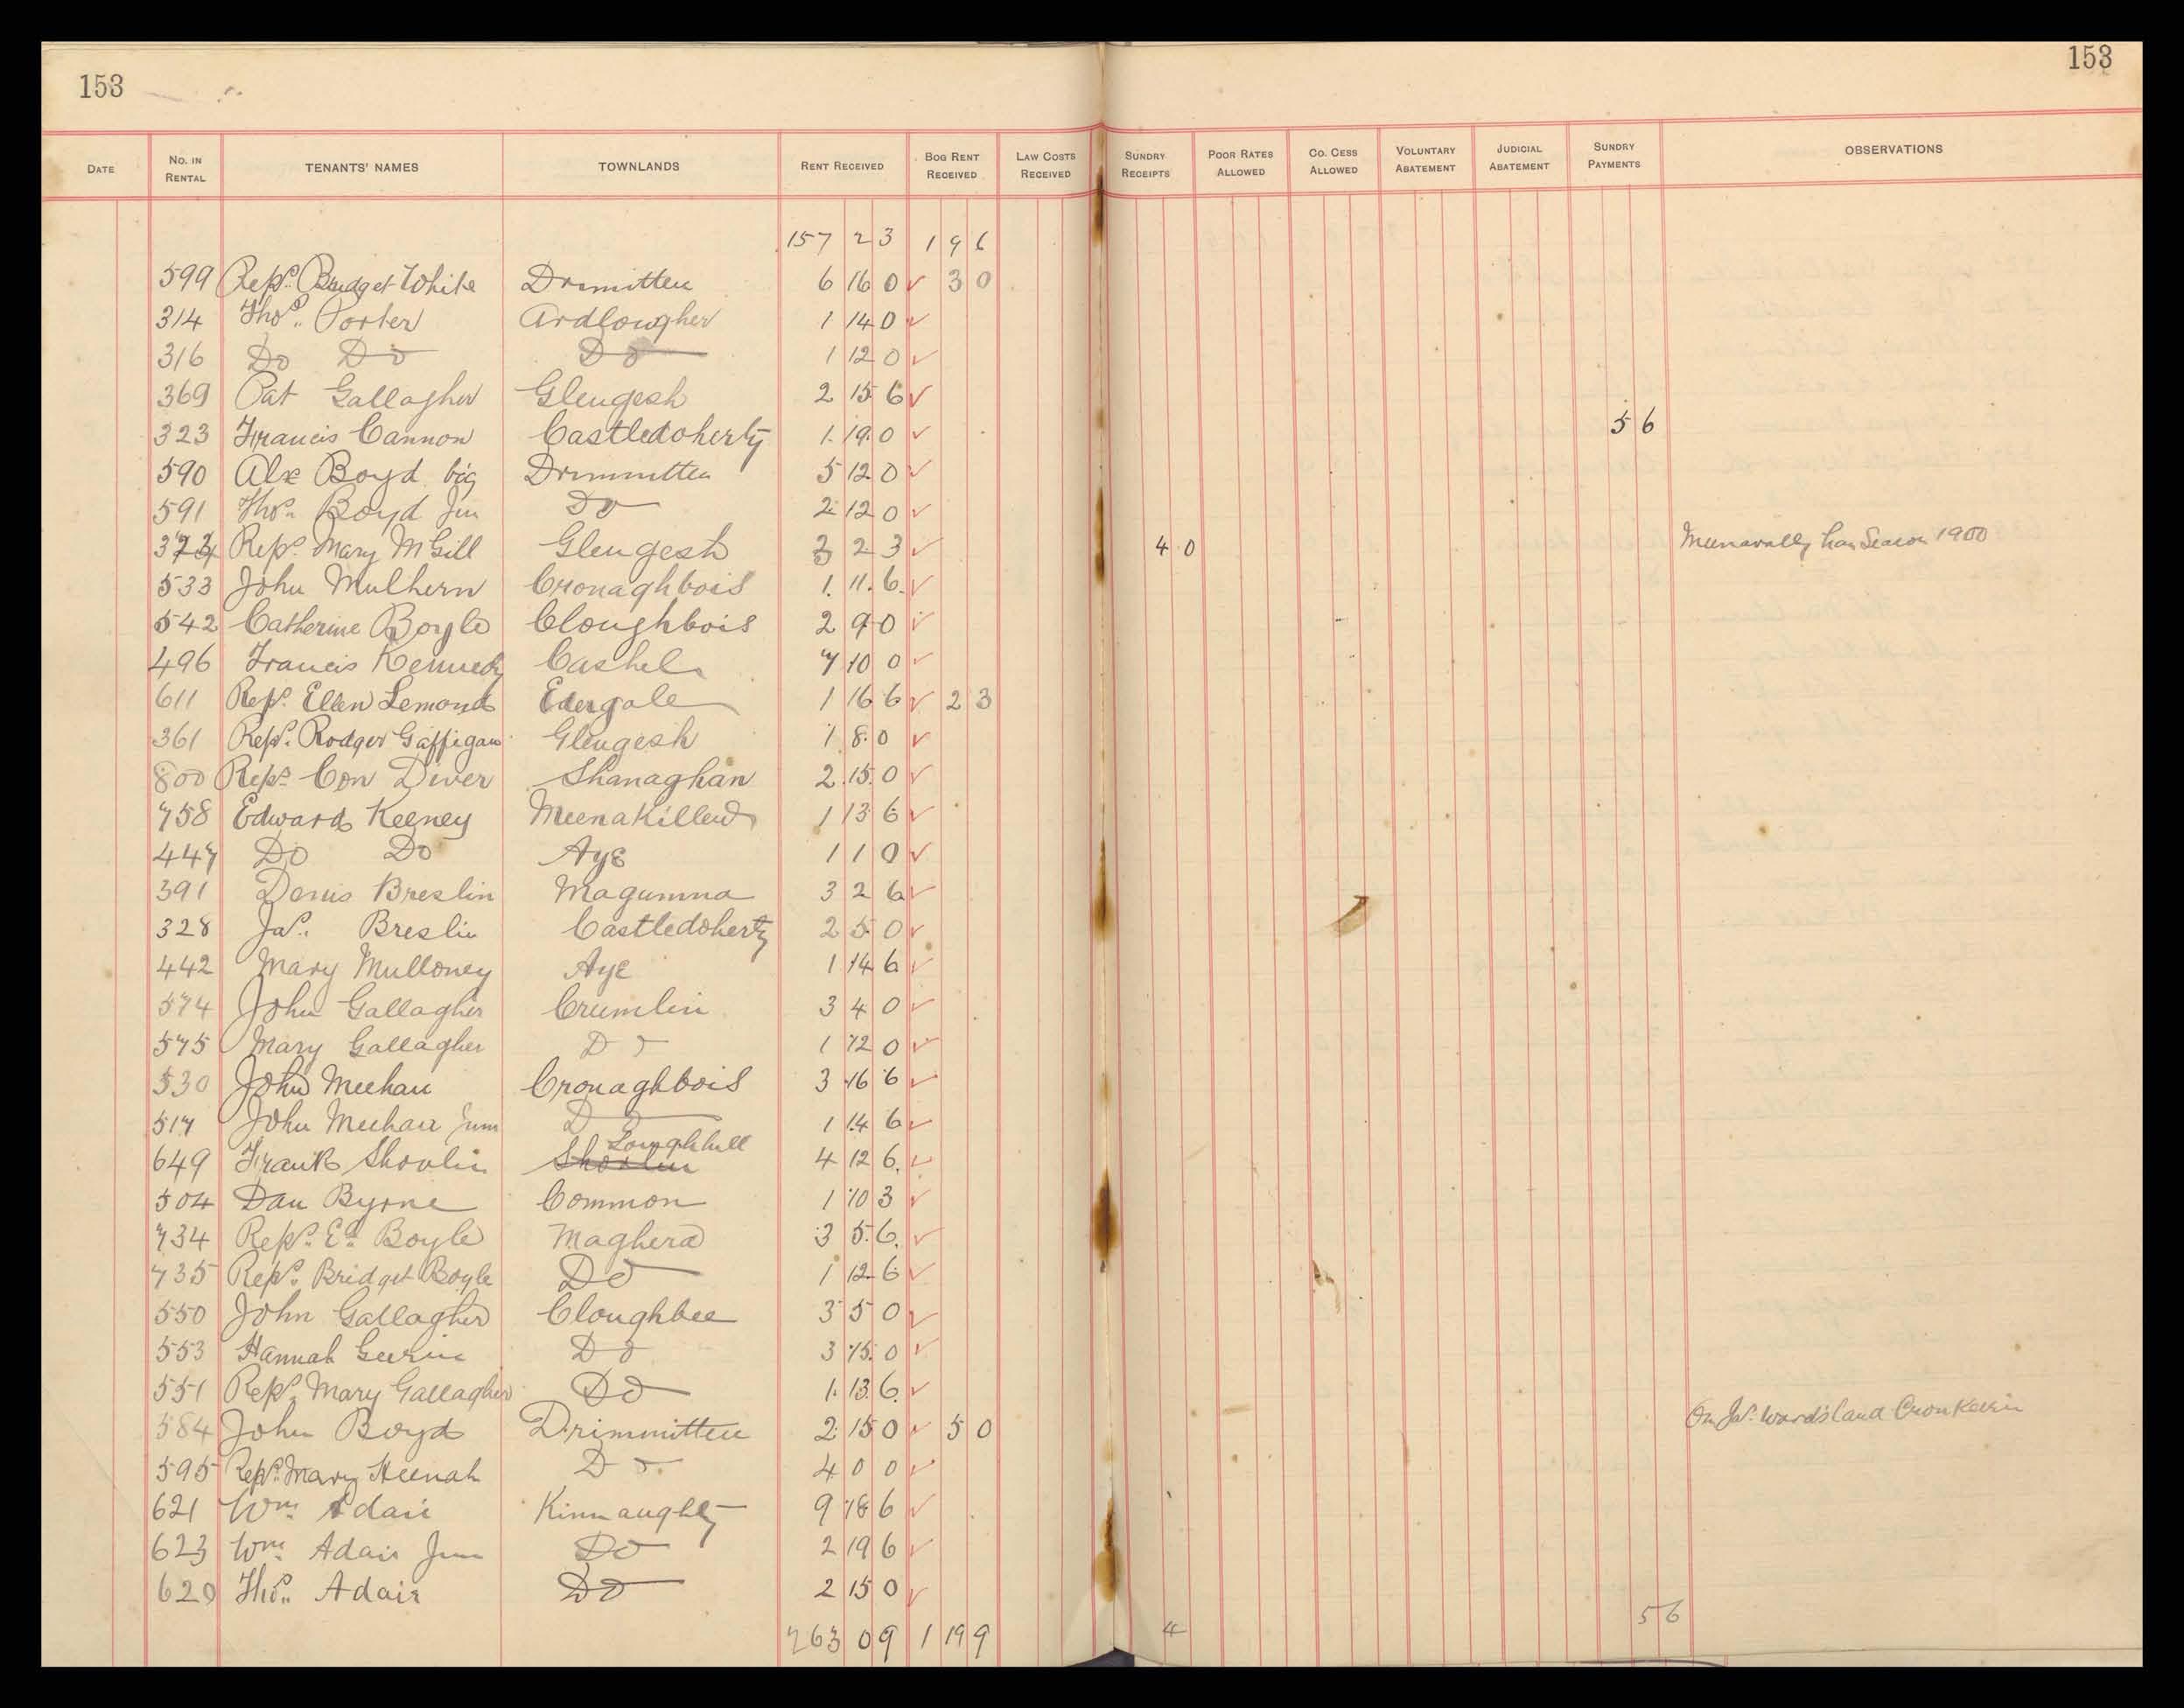 153
153
DATE No. IN RENTAL TENANTS' NAMES TOWNLANDS RENT RECEIVED BOG RENT RECEIVED LAW COSTS RECEIVED SUNDRY RECEIPTS POOR RATES ALLOWED CO. CESS ALLOWED VOLUNTARY ABATEMENT JUDICIAL ABATEMENT SUNDRY PAYMENTS OBSERVATIONS
157 2 3 1 9 6
599 Reps. Bridget White Drimitten 6 16 0 3 0
314 Thos. Porter Ardlougher 1 14 0
316 Do Do Do 1 12 0
369 Pat Gallagher Glengesh 2 15 6
323 Francis Cannon Castledoherty 1 19 0 5 6
590 Alx Boyd big Drimmitten 5 12 0
591 Thos. Boyd Jun Do 2 12 0
Reps. Mary McGill Glengesh 3 2 3 4 0 1900
533 John Mulhern Cronaghbois 1 11 6
542 Catherine Boyle Cloughbois 2 9 0
496 Francis Kennedy Cashel 7 10 0
611 Reps. Ellen Lemond Edergole 1 16 6 2 3
361 Reps. Rodger Gaffigan Glengesh 1 8 0
800 Reps. Con Diver Shanaghan 2 15 0
758 Edward Keeney Meenakillew 1 13 6
447 Do Do Aye 1 1 0
391 Denis Breslin Magumna 3 2 6
328 Jas. Breslin Castledoherty 2 5 0
442 Mary Mulloney Aye 1 14 6
574 John Gallagher Crumlin 3 4 0
575 Mary Gallagher Do 1 12 0
530 John Meehan Cronaghbois 3 16 6
517 John Meehan Junr Do 1 14 6
649 Frank Shovlin Shovlin Loughhill 4 12 6
504 Dan Byrne Common 1 10 3
734 Reps. Ed. Boyle Maghera 3 5 6
735 Reps. Bridget Boyle Do 1 12 6
550 John Gallagher Cloughbee 3 5 0
553 Hannah Gavin Do 3 15 0
551 Reps. Mary Gallagher Do 1 13 6
584 John Boyd Drimmitten 2 15 0 5 0 On Jas. Ward's land Cronkeerin
595 Reps. Mary Heenah Do 4 0 0
621 Wm. Adair Kinnaughty 9 18 6
623 Wm. Adair Jun Do 2 19 6
620 Thos. Adair Do 2 15 0
263 0 9 1 19 9 4 5 6